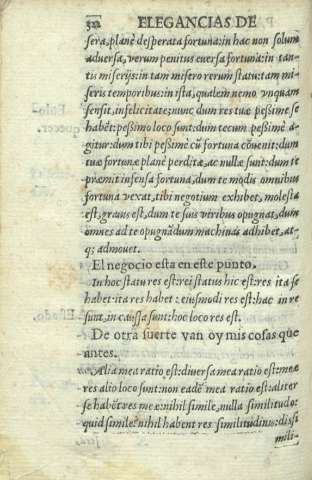 322 ELEGANCIAS DE
sera, planè desperata fortuna: in hac non solum
aduersa, verum penitus euersa fortuna: in tan-
tis miserijs: in tam misero rerum statu: tam mi-
seris temporibus: in ista, qualem nemo vnquam
sensit, infelicitate: nunc dum res tuæ peßime se
habēt: peßimo loco sunt: dum tecum peßimè a-
gitur: dum tibi peßimè cū fortuna cōuenit: dum
tuæ fortunæ planè perditæ, ac nullæ sunt: dum te
præmit infensa fortuna, dum te modis omnibus
fortuna vexat, tibi negotium exhibet, molesta
est, grauis est, dum te suis viribus opugnat, dum
omnes ad te opugnādum machinas adhibet, at-
q; admouet.
El negocio esta en este punto.
In hoc statu res est: rei status hic est: res ita se
habet: ita res habet: eiusmodi res est: hac in re
sunt, in caussa sunt: hoc loco res est.
De otra suerte van oy mis cosas que
antes.
Alia mea ratio est: diuersa mea ratio est: meæ
res alio loco sunt: non eadē mea ratio est: aliter
se habēt res meæ: nihil simile, nulla similitudo:
quid simile? nihil habent res similitudinis: dissi
mili-